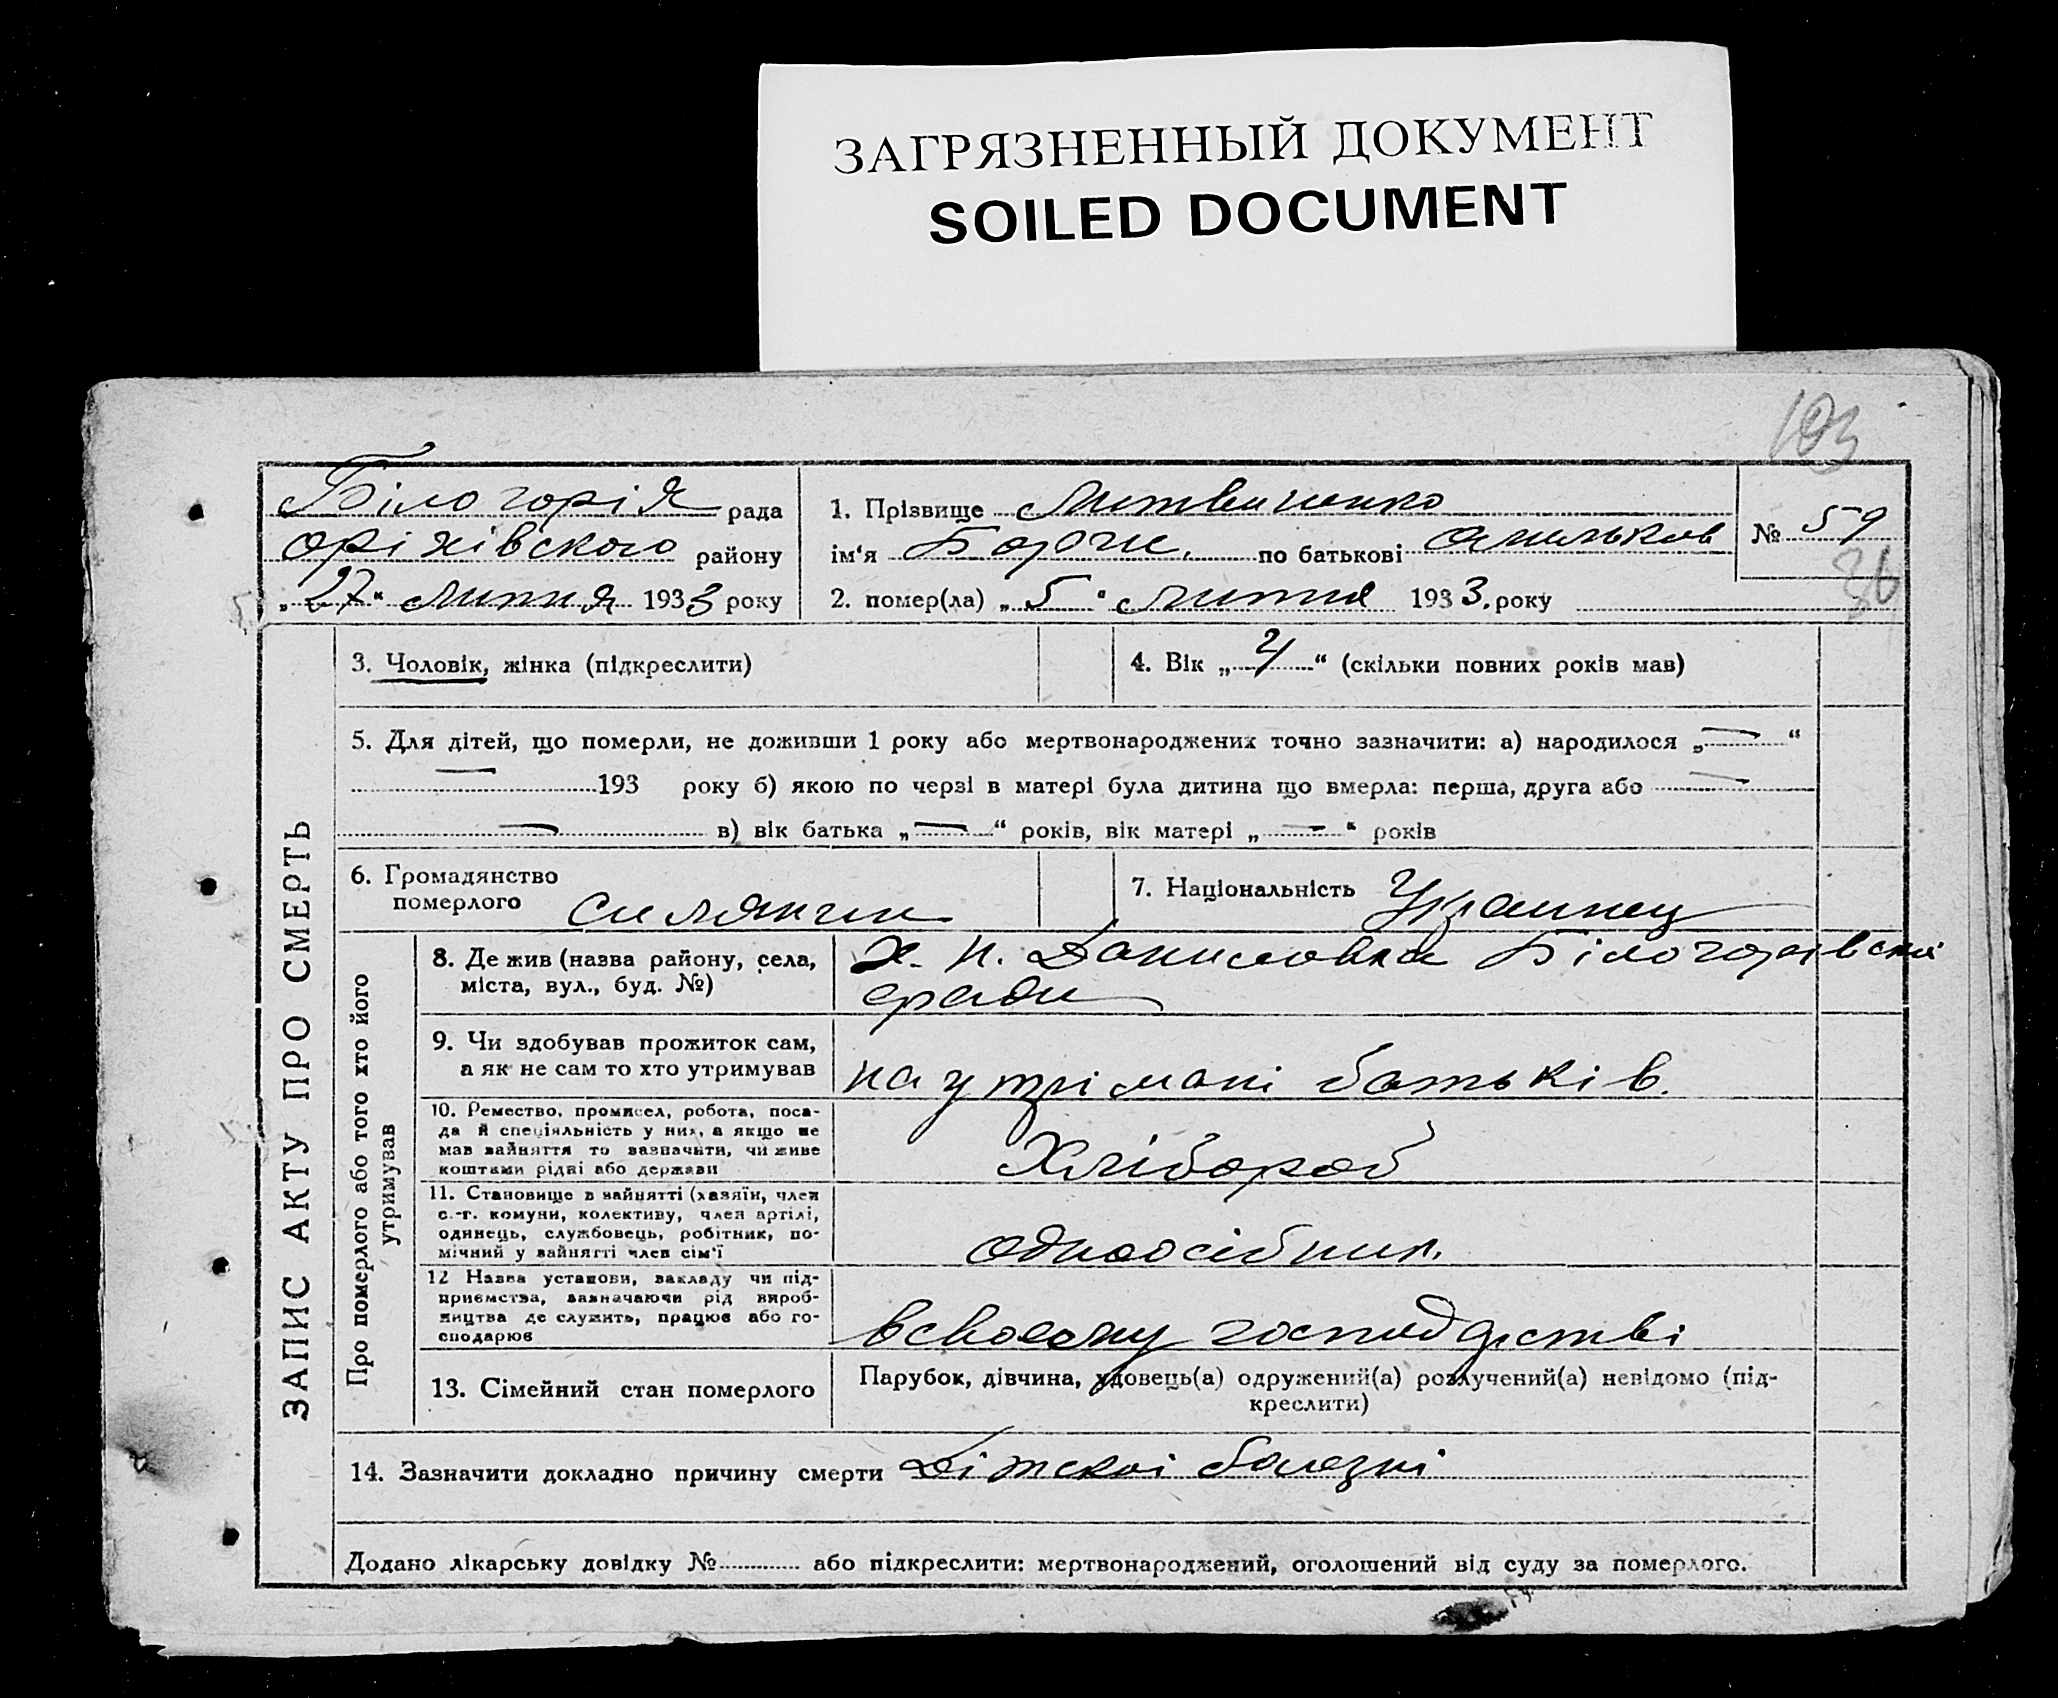 ЗАГРЯЗНЕННЫЙ ДОКУМЕНТ
SOILED DOCUMENT
103
Білогорія рада
оріхівского району
„27“ липня 1933 року
1. Прізвище Литвиненко
ім‘я Борис. по батькові
2. помер(ла) „5“ липня 1933. року
№ 59
36
ЗАПИС АКТУ ПРО СМЕРТЬ
3. Чоловік, жінка (підкреслити)
4. Вік „4“ (скільки повних років мав)
5. Для дітей, що померли, не доживши 1 року або мертвонароджених точно зазначити: а) народилося „—“
— 193 року б) якою по черзі в матері була дитина що вмерла: перша, друга або —
— в) вік батька „—“ років, вік матері „—“ років
6. Громадянство
померлого селянин
7. Національність Украинец
Про померлого або того хто його
утримував
8. Де жив (назва району, села,
міста, вул., буд. №)
х. Н. Даниловка Білогорівскої
ради
9. Чи здобував прожиток сам,
а як не сам то хто утримував
на утрімані батьків.
10. Ремество, промисел, робота, поса-
да й спеціяльність у них, а якщо не
мав зайняття то зазначити, чи живе
коштами рідні або держави
Хлібороб
11. Становище в зайнятті (хазяїн, член
с.-г. комуни, колективу, член артілі,
одинець, службовець, робітник, по-
мічний у зайнятті член сім'ї
одноосібник.
12 Назва установи, закладу чи під-
приємства, зазначаючи рід вироб-
ництва де служить, працює або го-
сподарює
в своєму господарстві
13. Сімейний стан померлого
Парубок, дівчина, удовець(а) одружений(а) розлучений(а) невідомо (під-
креслити)
14. Зазначити докладно причину смерти Дітскої болезні
Додано лікарську довідку № або підкреслити: мертвонароджений, оголошений від суду за померлого.